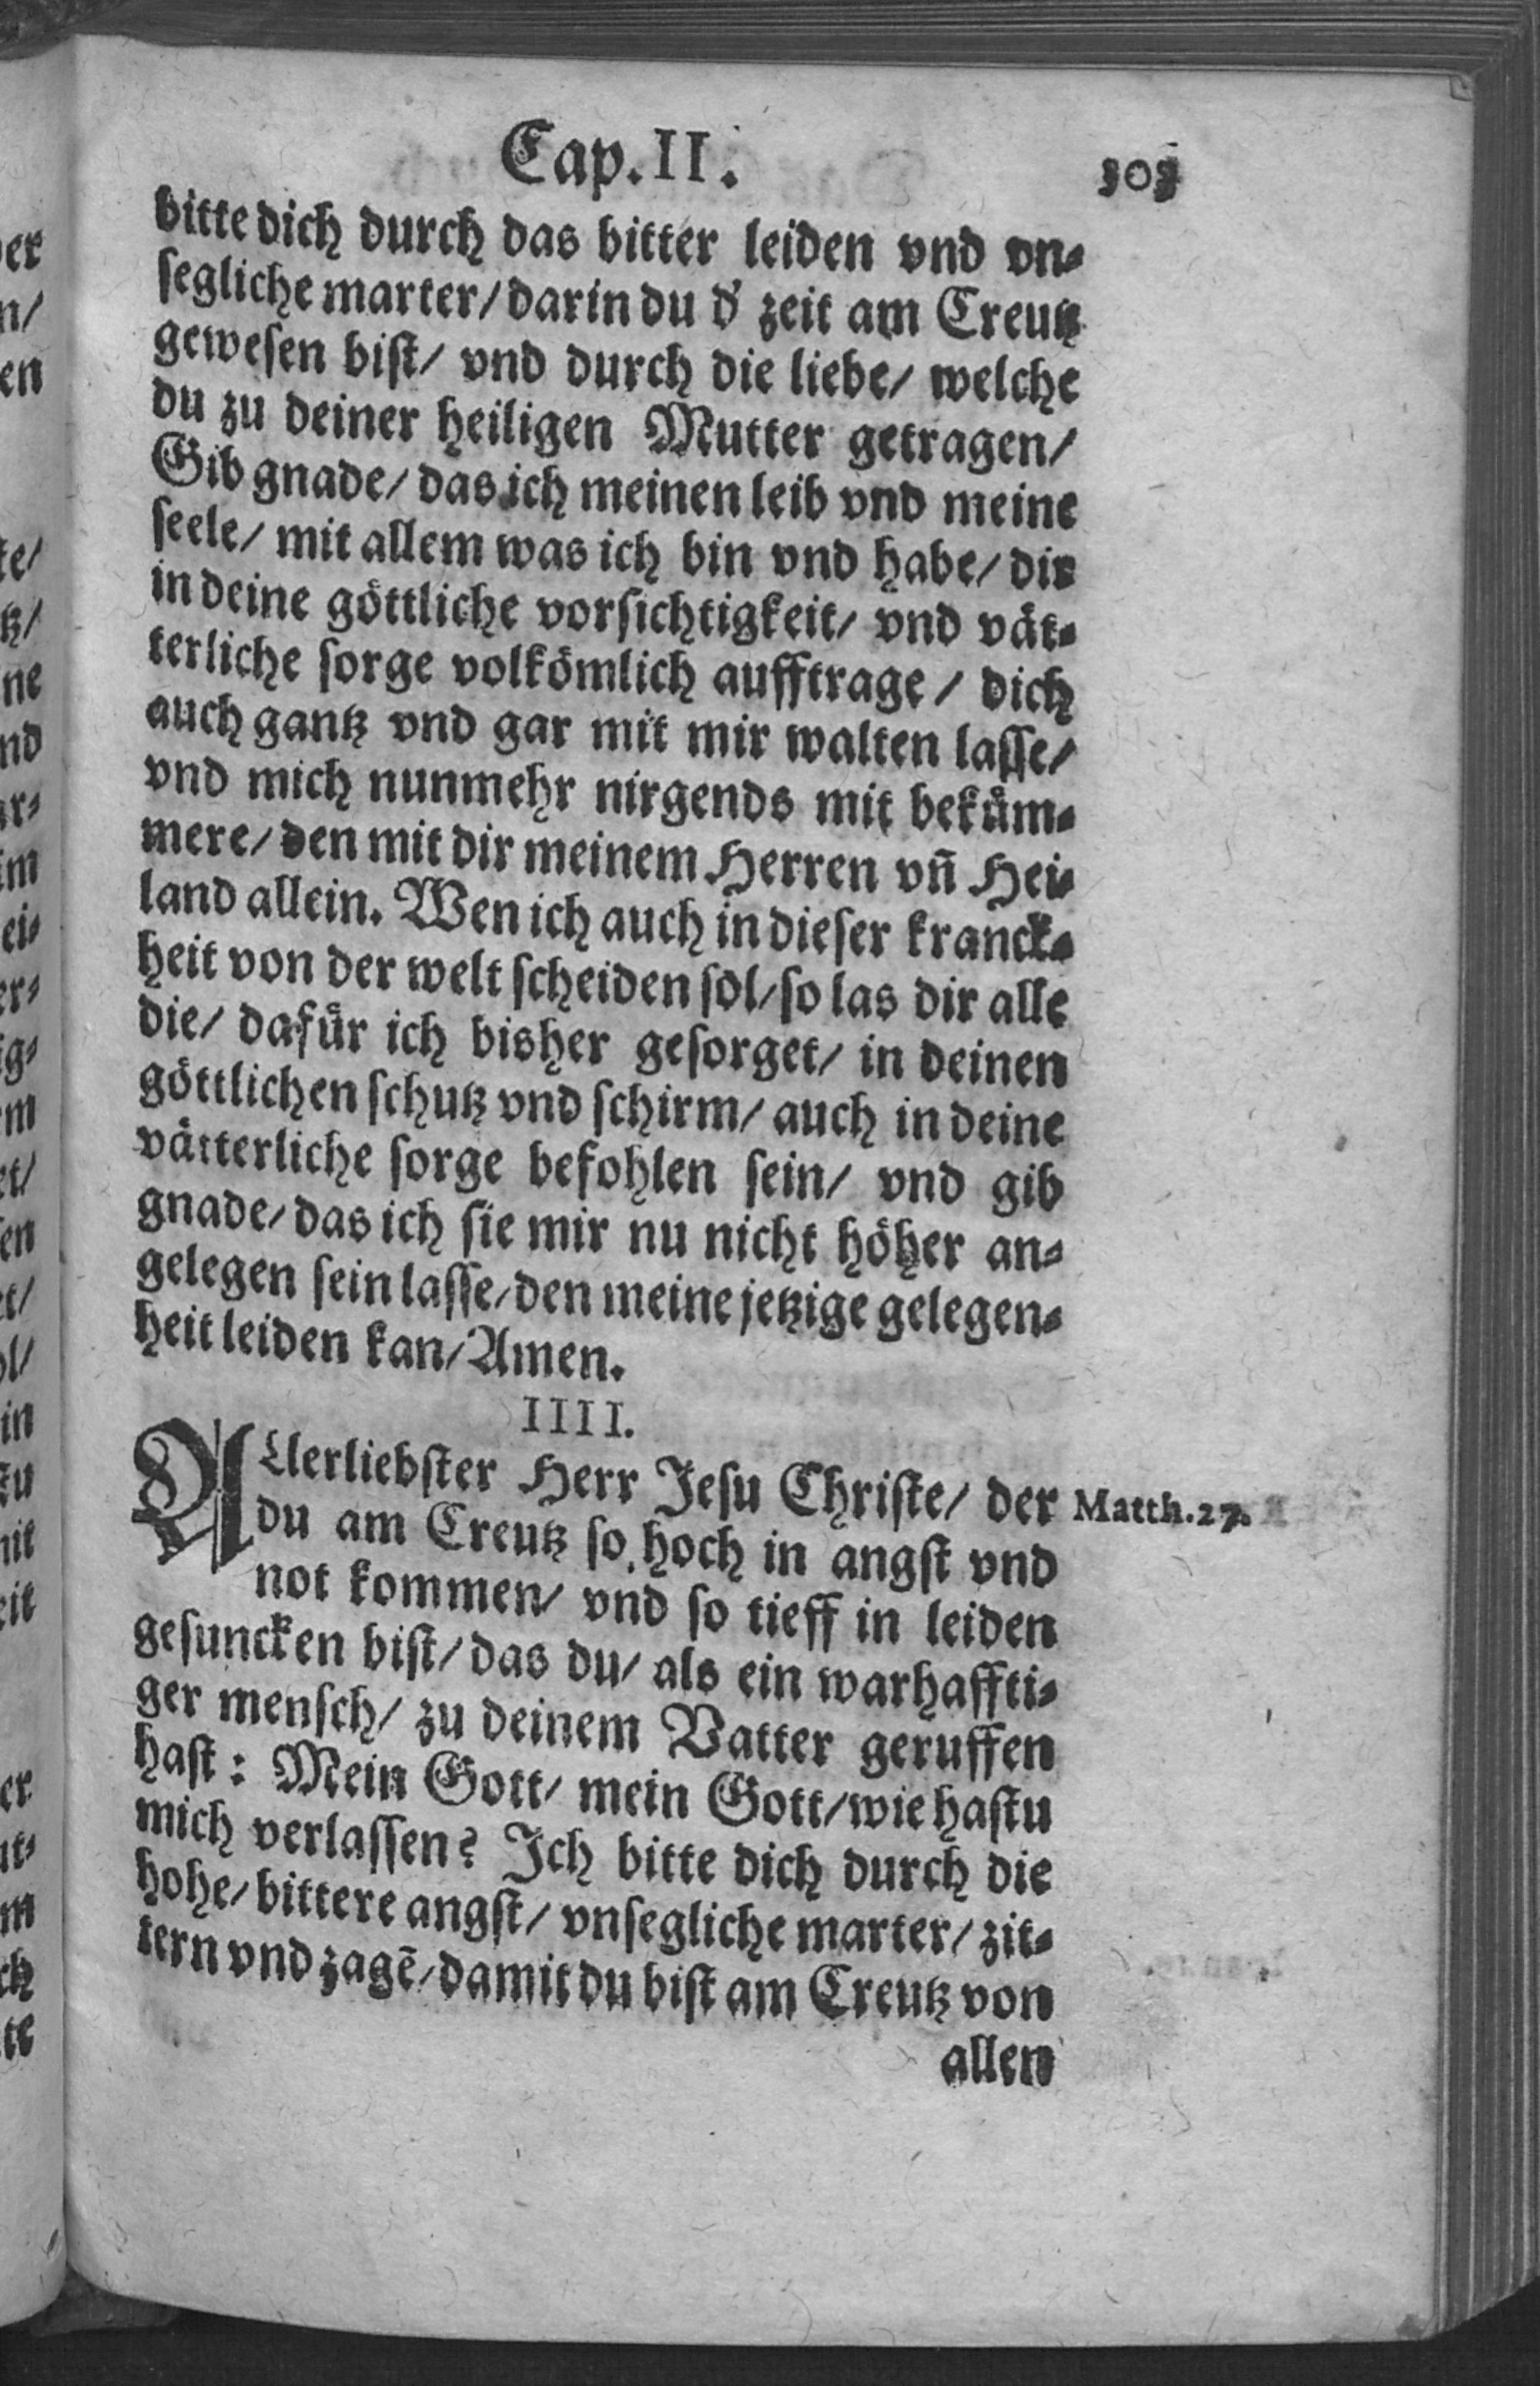 Cap. II.
303
bitte dich durch das bitter leiden vnd vn⸗
ſegliche marter/ darin du d' zeit am Creutz
geweſen biſt/ vnd durch die liebe/ welche
du zu deiner heiligen Mutter getragen/
Gib gnade/ das ich meinen leib vnd meine
ſeele/ mit allem was ich bin vnd habe/ dir
in deine göttliche vorſichtigkeit/ vnd vät⸗
terliche ſorge volkömlich aufftrage/ dich
auch gantz vnd gar mit mir walten laſſe/
vnd mich nunmehr nirgends mit beküm⸗
mere/ den mit dir meinem Herren vn̄ Hei⸗
land allein. Wen ich auch in dieſer kranck⸗
heit von der welt ſcheiden ſol/ ſo las dir alle
die/ dafür ich bisher geſorget/ in deinen
göttlichen ſchutz vnd ſchirm/ auch in deine
vätterliche ſorge befohlen ſein/ vnd gib
gnade/ das ich ſie mir nu nicht höher an⸗
gelegen ſein laſſe/ den meine jetzige gelegen⸗
heit leiden kan/ Amen.
IIII.
ALlerliebſter Herr Jeſu Chriſte/ der
Matth. 27.
du am Creutz ſo hoch in angſt vnd
not kommen/ vnd ſo tieff in leiden
geſuncken biſt/ das du/ als ein warhaffti⸗
ger menſch/ zu deinem Vatter geruffen
haſt: Mein Gott/ mein Gott/ wie haſtu
mich verlaſſen? Ich bitte dich durch die
hohe/ bittere angſt/ vnſegliche marter/ zit⸗
tern vnd zagē/ damit du biſt am Creutz von
allen